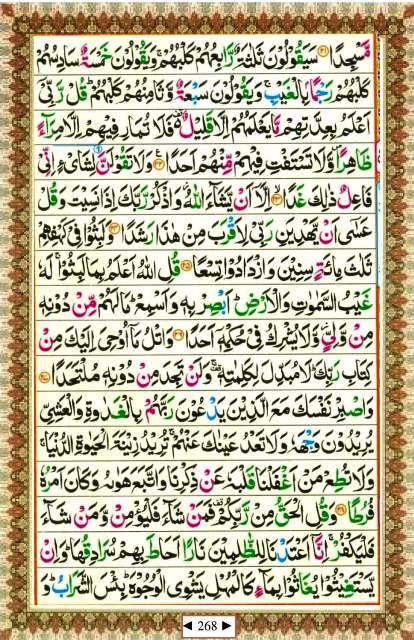 مَّسْجِدًا ﴿۲۱﴾ سَيَقُوْلُوْنَ ثَلٰثَةٌ رَّابِعُهُمْ كَلْبُهُمْ ۚ وَيَقُوْلُوْنَ خَمْسَةٌ سَادِسُهُمْ
كَلْبُهُمْ رَجْمًۢا بِالْغَيْبِ ۚ وَيَقُوْلُوْنَ سَبْعَةٌ وَّثَامِنُهُمْ كَلْبُهُمْ ؕ قُلْ رَّبِّىْۤ
اَعْلَمُ بِعِدَّتِهِمْ مَّا يَعْلَمُهُمْ اِلَّا قَلِيْلٌ ۬ فَلَا تُمَارِ فِيْهِمْ اِلَّا مِرَآءً
ظَاهِرًا ۪ وَّلَا تَسْتَفْتِ فِيْهِمْ مِّنْهُمْ اَحَدًا ﴿۲۲﴾ وَلَا تَقُوْلَنَّ لِشَاىْءٍ اِنِّىْ
فَاعِلٌ ذٰلِكَ غَدًا ﴿۲۳﴾ اِلَّاۤ اَنْ يَّشَآءَ اللّٰهُ ۫ وَاذْكُرْ رَّبَّكَ اِذَا نَسِيْتَ وَقُلْ
عَسٰۤى اَنْ يَّهْدِيَنِ رَبِّىْ لِاَقْرَبَ مِنْ هٰذَا رَشَدًا ﴿۲۴﴾ وَلَبِثُوْا فِىْ كَهْفِهِمْ
ثَلٰثَ مِائَةٍ سِنِيْنَ وَازْدَادُوْا تِسْعًا ﴿۲۵﴾ قُلِ اللّٰهُ اَعْلَمُ بِمَا لَبِثُوْا ۚ لَهٗ
غَيْبُ السَّمٰوٰتِ وَالْاَرْضِ ؕ اَبْصِرْ بِهٖ وَاَسْمِعْ ؕ مَا لَهُمْ مِّنْ دُوْنِهٖ
مِنْ وَّلِىٍّ ۫ وَّلَا يُشْرِكُ فِىْ حُكْمِهٖۤ اَحَدًا ﴿۲۶﴾ وَاتْلُ مَاۤ اُوْحِىَ اِلَيْكَ مِنْ
كِتَابِ رَبِّكَ ؕ لَا مُبَدِّلَ لِكَلِمٰتِهٖ ۫ وَلَنْ تَجِدَ مِنْ دُوْنِهٖ مُلْتَحَدًا ﴿۲۷﴾
وَاصْبِرْ نَفْسَكَ مَعَ الَّذِيْنَ يَدْعُوْنَ رَبَّهُمْ بِالْغَدٰوةِ وَالْعَشِىِّ
يُرِيْدُوْنَ وَجْهَهٗ وَلَا تَعْدُ عَيْنٰكَ عَنْهُمْ ۚ تُرِيْدُ زِيْنَةَ الْحَيٰوةِ الدُّنْيَا ۚ
وَلَا تُطِعْ مَنْ اَغْفَلْنَا قَلْبَهٗ عَنْ ذِكْرِنَا وَاتَّبَعَ هَوٰىهُ وَكَانَ اَمْرُهٗ
فُرُطًا ﴿۲۸﴾ وَقُلِ الْحَقُّ مِنْ رَّبِّكُمْ ۫ فَمَنْ شَآءَ فَلْيُؤْمِنْ وَّمَنْ شَآءَ
فَلْيَكْفُرْ ۙ اِنَّاۤ اَعْتَدْنَا لِلظّٰلِمِيْنَ نَارًا ۙ اَحَاطَ بِهِمْ سُرَادِقُهَا ؕ وَاِنْ
يَّسْتَغِيْثُوْا يُغَاثُوْا بِمَآءٍ كَالْمُهْلِ يَشْوِى الْوُجُوْهَ ؕ بِئْسَ الشَّرَابُ ؕ وَ
268